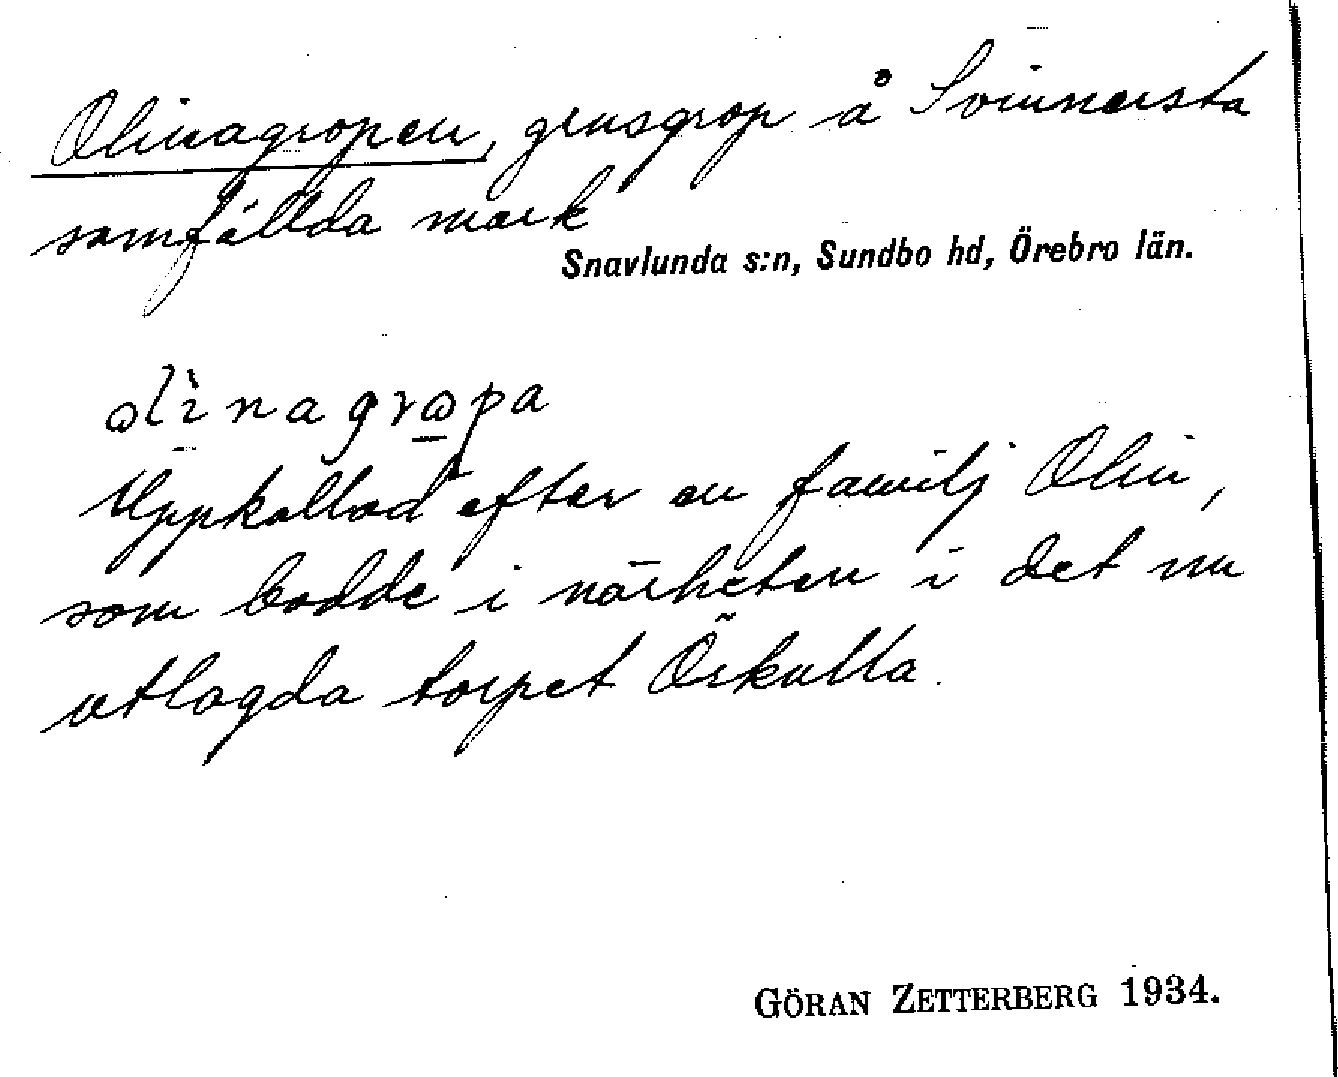 Olinagropen, grusgrop å Svinnersta
samfällda mark
Snavlunda s:n, Sundbo hd, Örebro län.
ωlìnagrω̲pa
Uppkallad efter en familj Olin,
som bodde i närheten i det nu
utlagda torpet Örkulla.
GÖRAN ZETTERBERG 1934.